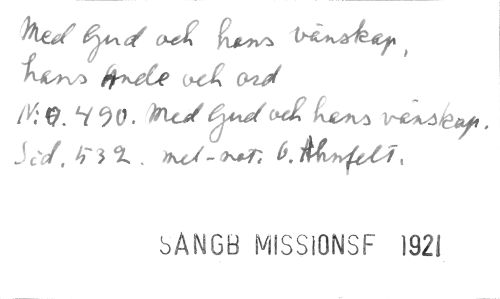 Med Gud och hans vänskap,
hans Ande och ord
N:o. 490. Med Gud och hans vänskap.
Sid. 532. mel-not: O. Ahnfelt.
SANGB MISSIONSF 1921